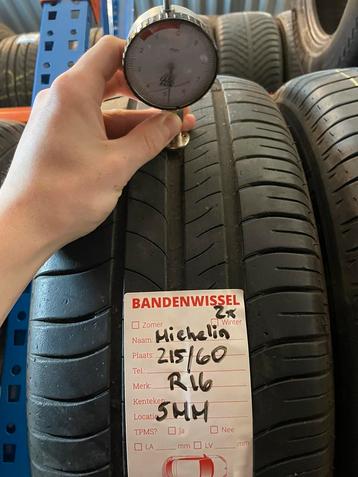 BANDENWISSEL
2x
Zomer Winter
Naam: Michelin
Plaats: 215/60
Tel.
Merk: R16
Kenteken:
Locatie: 5MM
TPMS? Ja Nee
LA mm LV mm